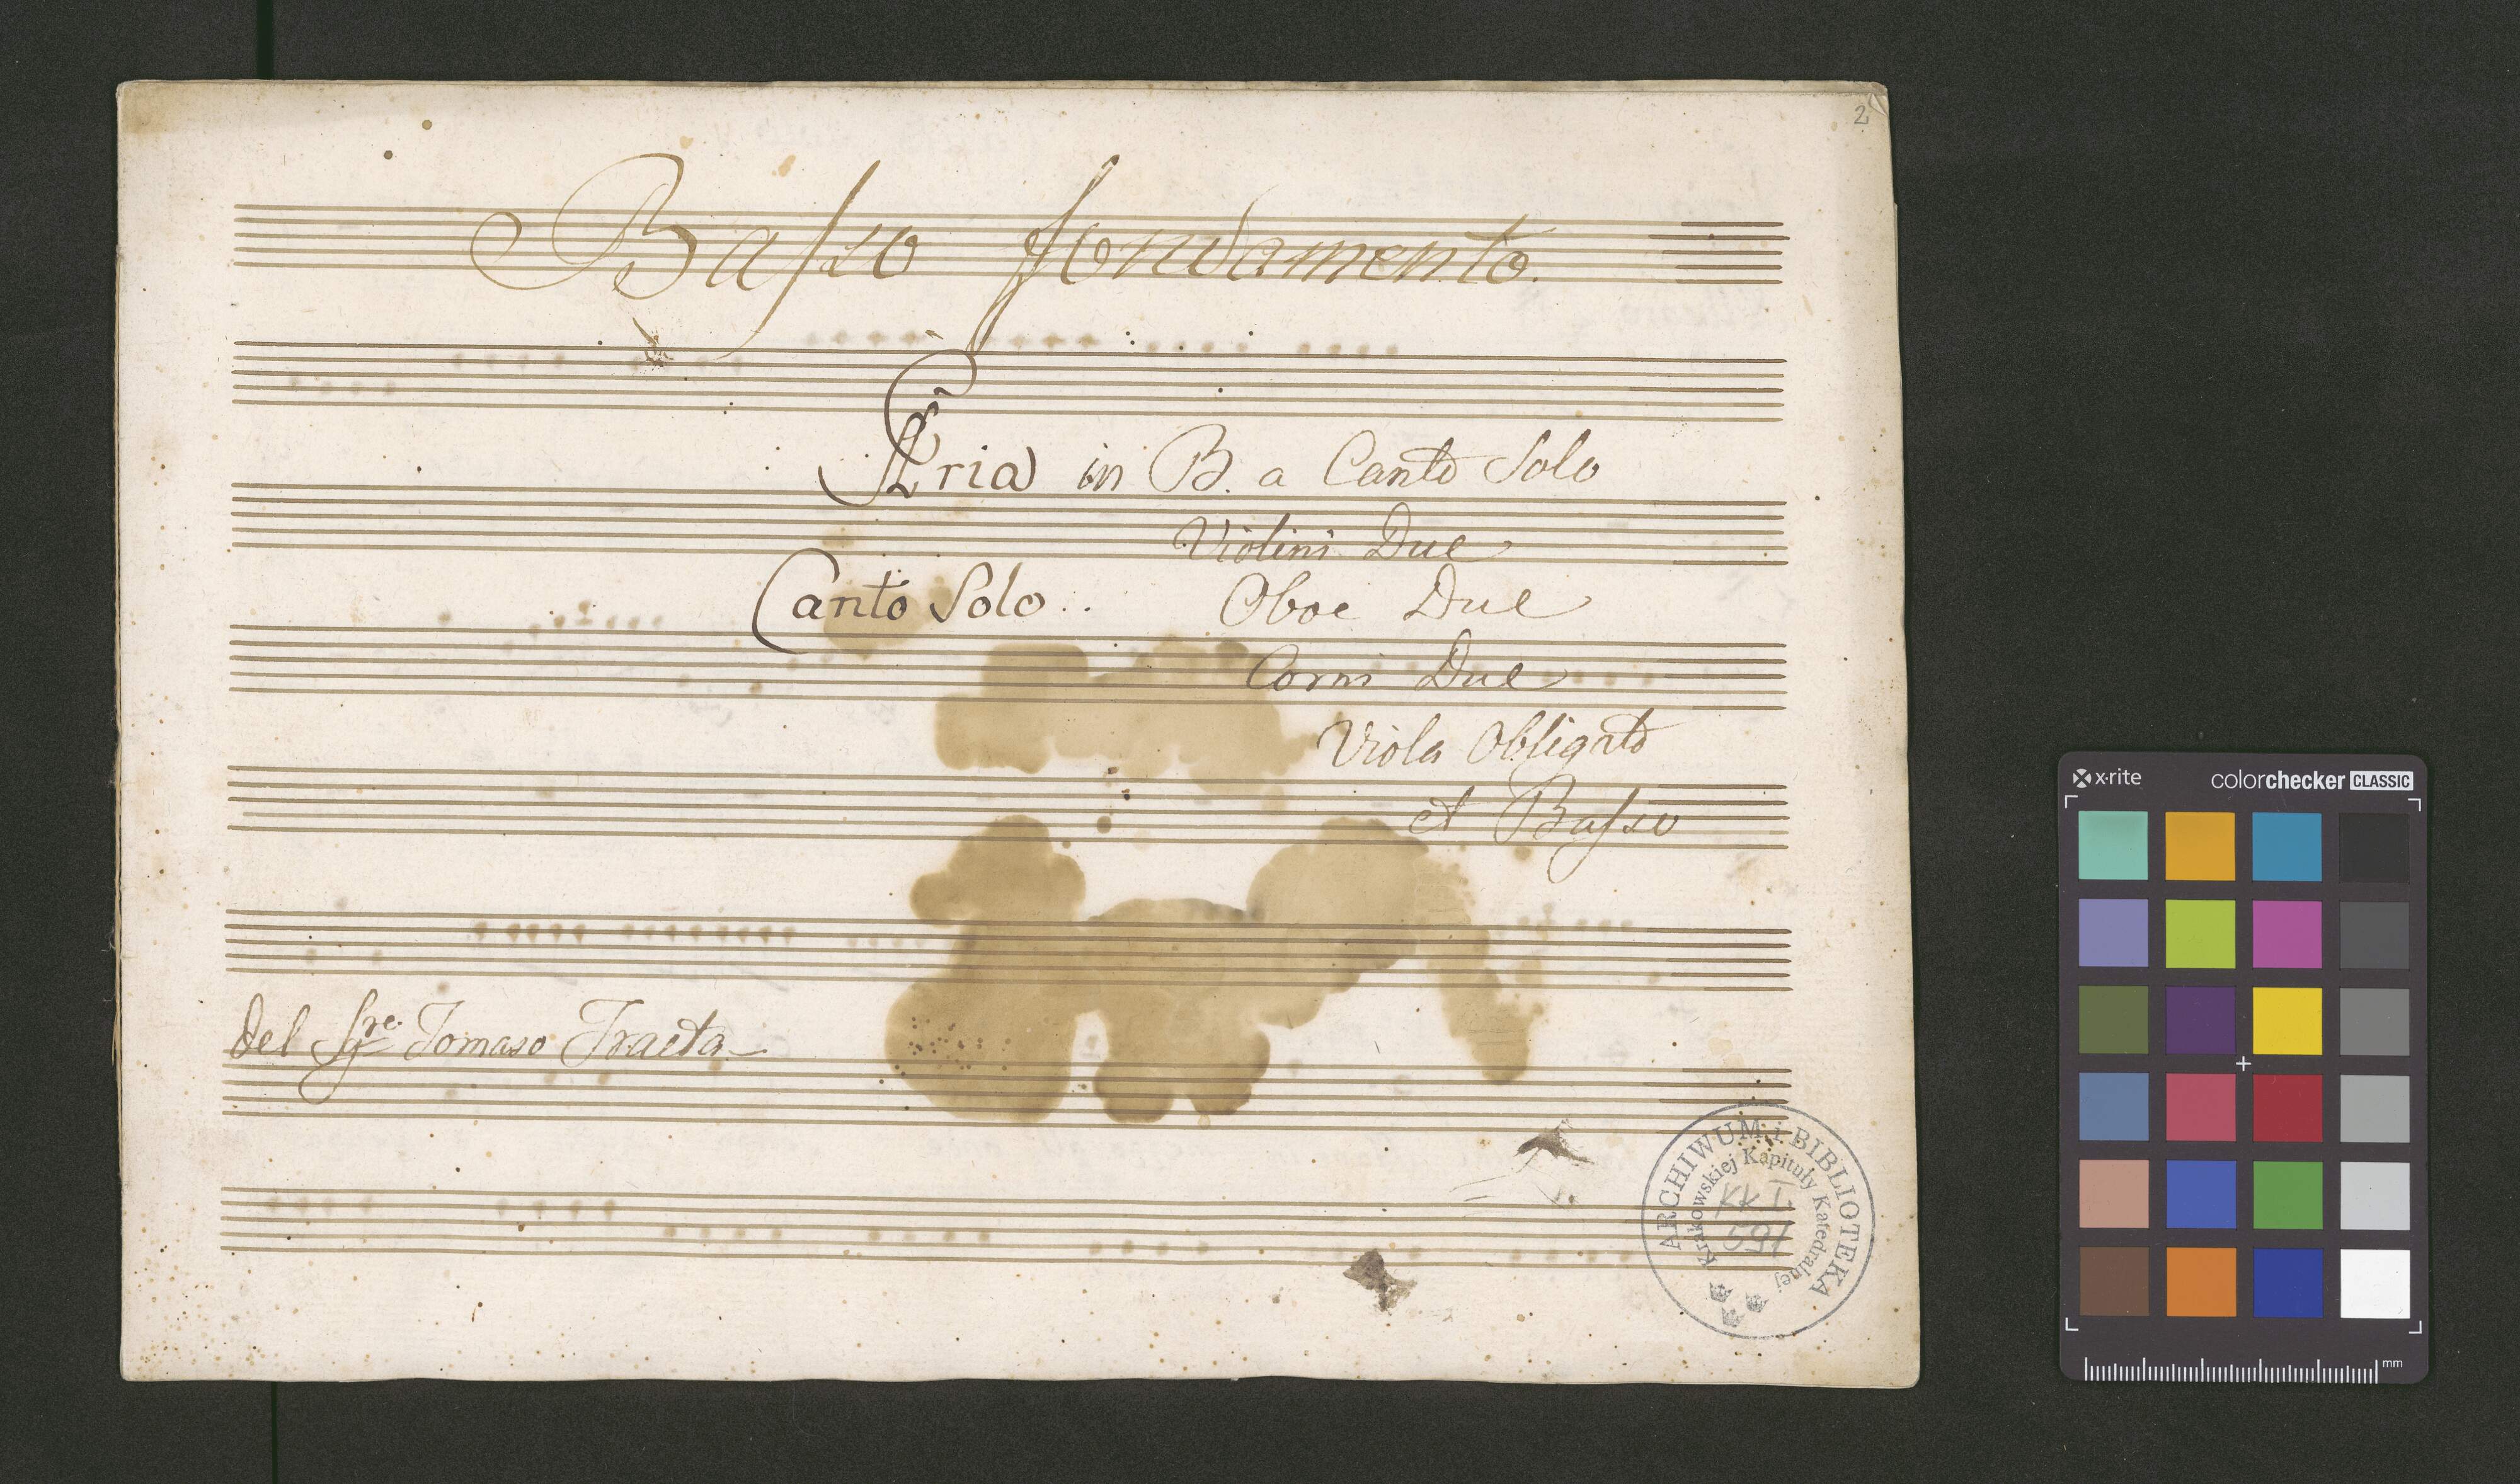 2
Baſso fondamento.
Aria in B. a Canto Solo
Violini Due
Canto Solo..
Oboe Due
Corni Due
Viola Obligato
et Baſso
del Sgre Tomaso Traeta
ARCHIWUM i BIBLIOTEKA
Krakowskiej Kapituły Katedralnej
KK I.
591
x·rite
colorchecker CLASSIC
mm